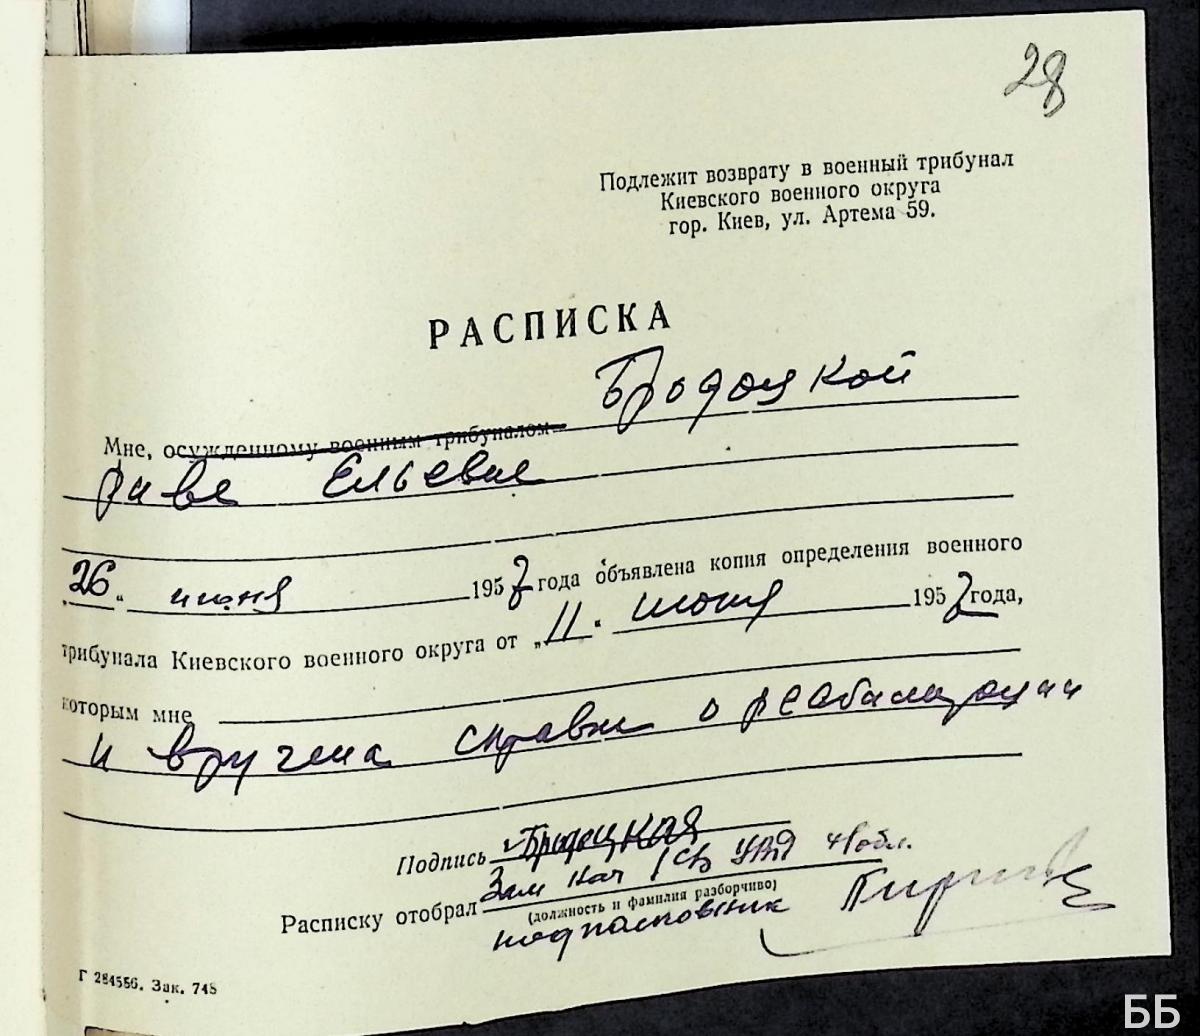 28
Подлежит возврату в военный трибунал
Киевского военного округа
гор. Киев, ул. Артема 59.
РАСПИСКА
Мне, осужденному военным трибуналом Бродоцкой
Риве Ельевне
„26“ июня 1957 года объявлена копия определения военного
трибунала Киевского военного округа от „11“ июня 1957 года,
которым мне
и вручена справка о реабилитации
Подпись Бродоцкая
Расписку отобрал Зам нач УВД обл.
(должность и фамилия разборчиво)
подполковник
Г 284556. Зак. 748
ББ